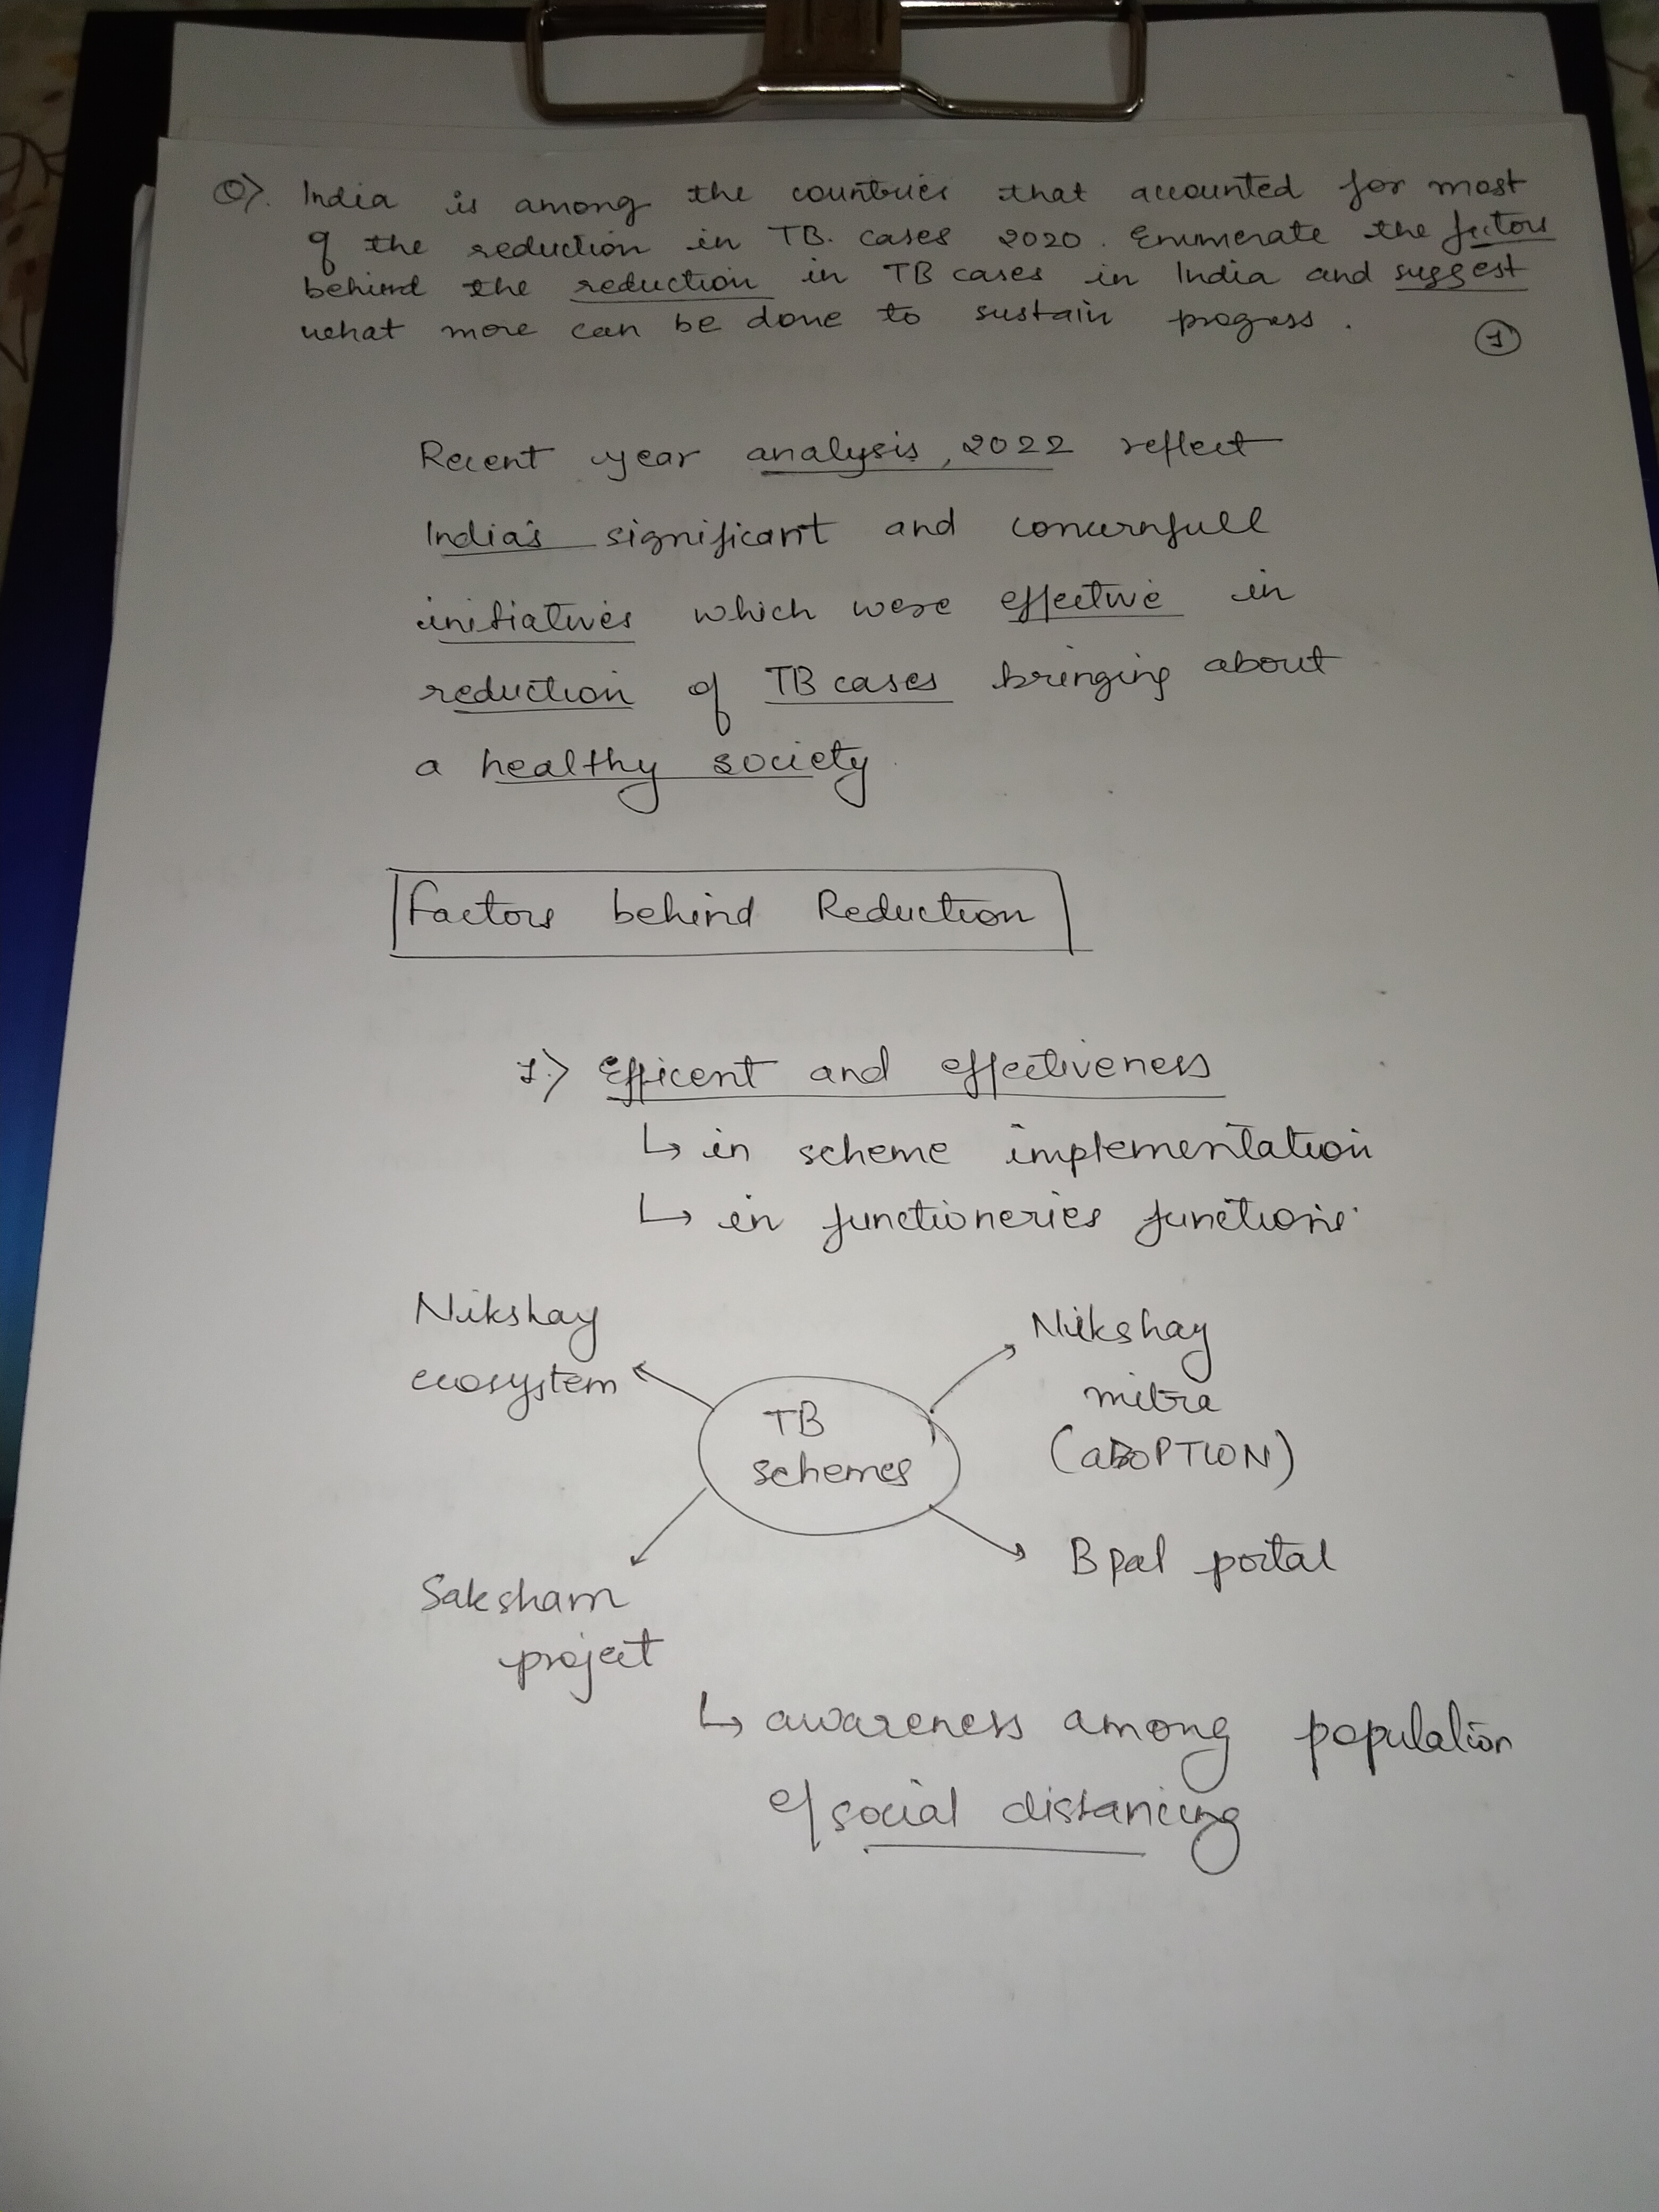 Q). India is among the countries that accounted for most
of the reduction in TB. cases 2020. Enumerate the factors
behind the reduction in TB cases in India and suggest
what more can be done to sustain progress.
1
Recent year analysis, 2022 reflect
India's significant and concernfull
initiatives which were effective in
reduction of TB cases bringing about
a healthy society
Factors behind Reduction
1.) Efficent and effectiveness
↳ in scheme implementation
↳ in functioneries functions.
Nikshay
ecosystem
Nikshay
mitra
(aDOPTION)
TB
schemes
Saksham
project
Bpal portal
↳ awareness among population
of social distancing